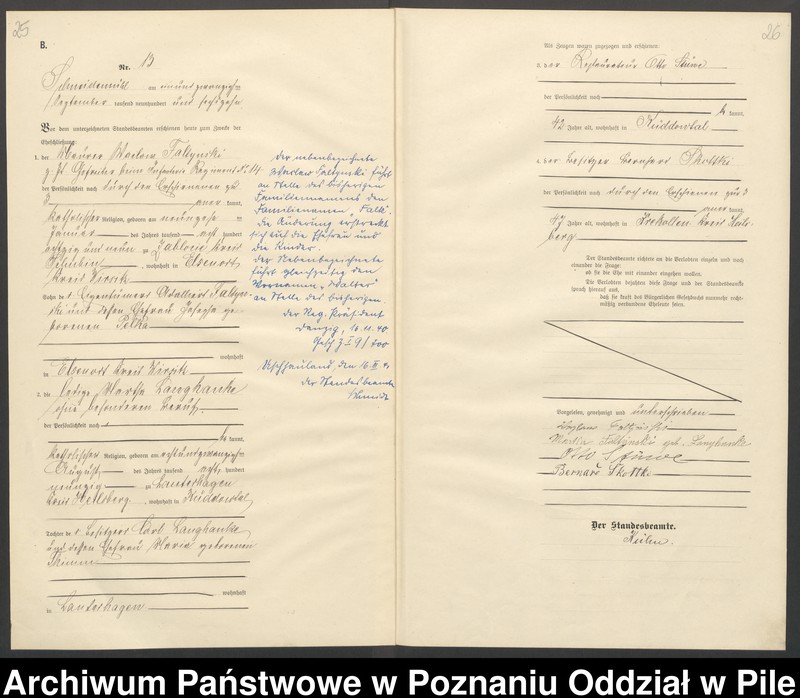 25
B.
Nr. 13
Schneidemühl am einundzwanzigsten
September tausend neunhundert und sechzehn
Vor dem unterzeichneten Standesbeamten erschienen heute zum Zwecke der
Eheschließung:
1. der Maurer Waclaw Faltynski
z. Zt. Gefreiter beim Infanterie Regiment Nr. 14
der Persönlichkeit nach durch den Erschienenen zu
3 kannt,
katholischer Religion, geboren am neunzehn
Januar des Jahres tausend acht hundert
achtzig und neun zu Jablowo Kreis
Schubin, wohnhaft in Elsenort
Kreis Wirsitz
Sohn des Eigentümers Adalbert Faltyn-
ski und dessen Ehefrau Josefa ge-
borenen Polka
wohnhaft
in Elsenort Kreis Wirsitz
2. die ledige Martha Langhanke
ohne besonderen Beruf
der Persönlichkeit nach
kannt,
katholischer Religion, geboren am achtundzwanzigsten
August des Jahres tausend acht hundert
neunzig zu Lauterhagen
Kreis Heilsberg, wohnhaft in Küddowtal
Tochter des Besitzers Karl Langhanke
und dessen Ehefrau Maria geborenen
wohnhaft
in Lauterhagen
Der nebenbezeichnete
Waclaw Faltynski führt
an Stelle des bisherigen
Familiennamens den
Familiennamen „Falk“.
Die Änderung erstreckt
sich auf die Ehefrau und
die Kinder.
Der Nebenbezeichnete
führt gleichzeitig den
Vornamen „Walter“
an Stelle des bisherigen.
Der Reg. Präsident
Danzig, 16.11.40
Usch-Neuland, den 16.
der Standesbeamte
Schmidt
26
Als Zeugen waren zugezogen und erschienen:
3. der Restaurateur Otto Stüwe
der Persönlichkeit nach
kannt,
42 Jahre alt, wohnhaft in Küddowtal
4. der Besitzer Bernhard Skottki
der Persönlichkeit nach durch den Erschienenen zu 3
kannt,
47 Jahre alt, wohnhaft in Krekollen Kreis Heils-
berg
Der Standesbeamte richtete an die Verlobten einzeln und nach
einander die Frage:
ob sie die Ehe mit einander eingehen wollen.
Die Verlobten bejahten diese Frage und der Standesbeamte
sprach hierauf aus,
daß sie kraft des Bürgerlichen Gesetzbuchs nunmehr recht-
mäßig verbundene Eheleute seien.
Vorgelesen, genehmigt und unterschrieben
Waclaw Faltynski
Martha Faltynski geb. Langhanke
Otto Stüwe
Bernard Skottki
Der Standesbeamte.
Archiwum Państwowe w Poznaniu Oddział w Pile